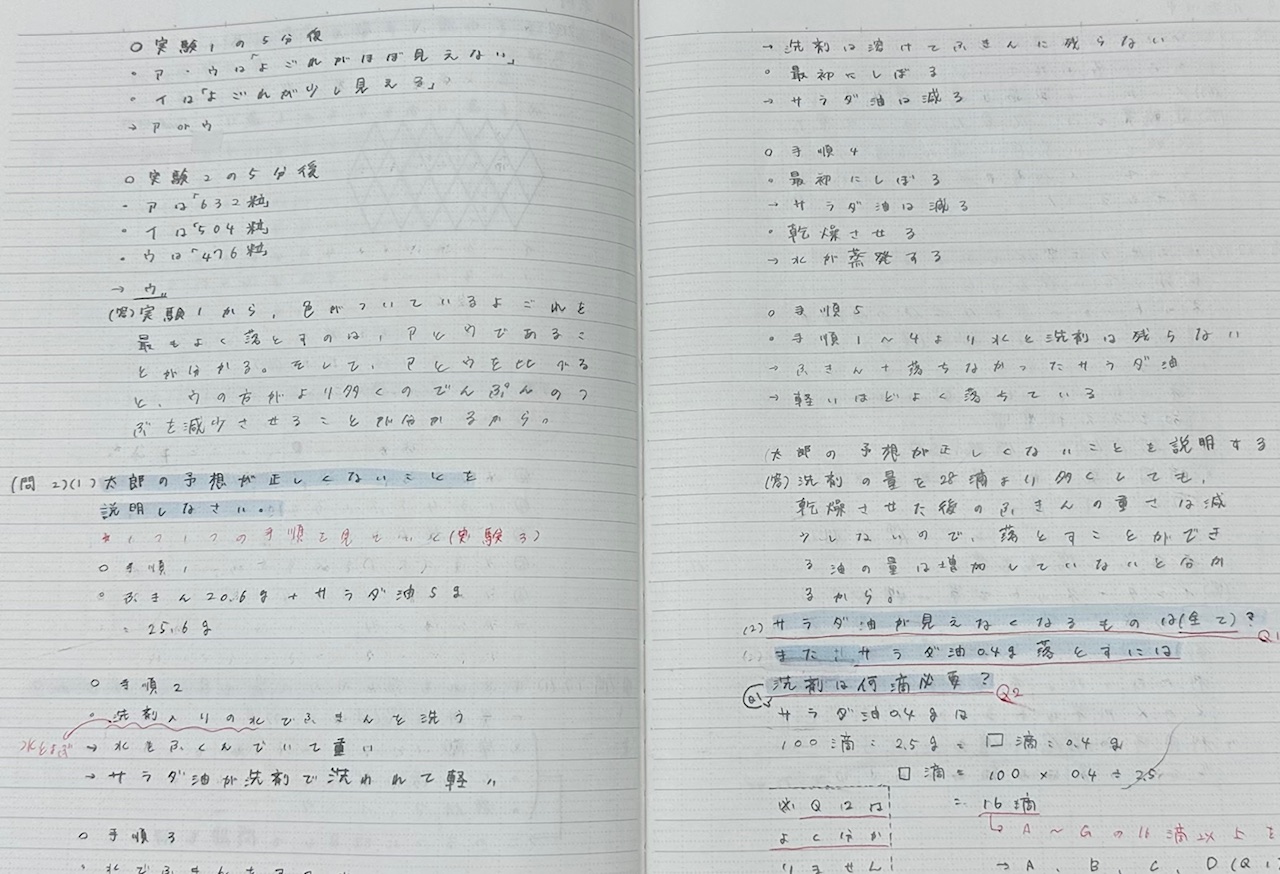 ○ 実験1の5分後
・ア・ウは「よごれがほぼ見えない」
・イは「よごれが少し見える」
→ ア or ウ
○ 実験2の5分後
・アは「632粒」
・イは「504粒」
・ウは「476粒」
→ ウ
(答)実験1から、色がついているよごれを
最もよく落とすのは、アとウであるこ
とが分かる。そして、アとウを比べる
と、ウの方がより多くのでんぷんのつ
ぶを減少させることが分かるから。
(問2)(1) 太郎の予想が正しくないことを
説明しなさい。
* 1つ1つの手順を見ていく(実験3)
○ 手順1
・ふきん20.6g+サラダ油5g
=25.6g
○ 手順2
・洗剤入りの水でふきんを洗う
→ 水をふくんでいて重い
→ サラダ油が洗剤で洗われて軽い
○ 手順3
→ 洗剤は溶けてふきんに残らない
・最初にしぼる
→ サラダ油は減る
○ 手順4
・最初にしぼる
→ サラダ油は減る
・乾燥させる
→ 水が蒸発する
○ 手順5
・手順1~4より水と洗剤は残らない
→ ふきん+落ちなかったサラダ油
→ 軽いほどよく落ちている
(太郎の予想が正しくないことを説明する
(答)洗剤の量を28滴より多くしても、
乾燥させた後のふきんの重さは減
少しないので、落とすことができ
る油の量は増加していないと分か
るから。
(2) サラダ油が見えなくなるものは(全て)?
Q1
また、サラダ油0.4g落とすには
洗剤は何滴必要?
Q2
Q1
サラダ油0.4gは
100滴:2.5g=□滴:0.4g
□滴=100×0.4÷2.5
=16滴
A~Gの16滴以上を
→ A、B、C、D(Q1
※ Q12は
よく分か
りません